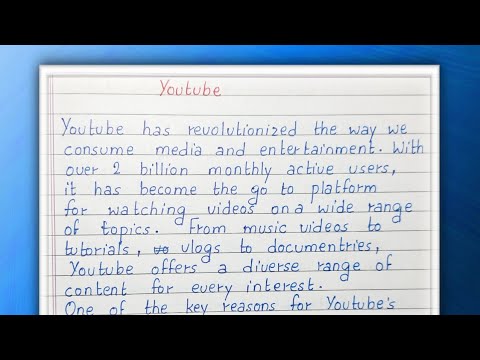 Youtube
Youtube has revolutionized the way we
consume media and entertainment. With
over 2 billion monthly active users,
it has become the go to platform
for watching videos on a wide range
of topics. From music videos to
tutorials, vlogs to documentries,
Youtube offers a diverse range of
content for every interest.
One of the key reasons for Youtube's